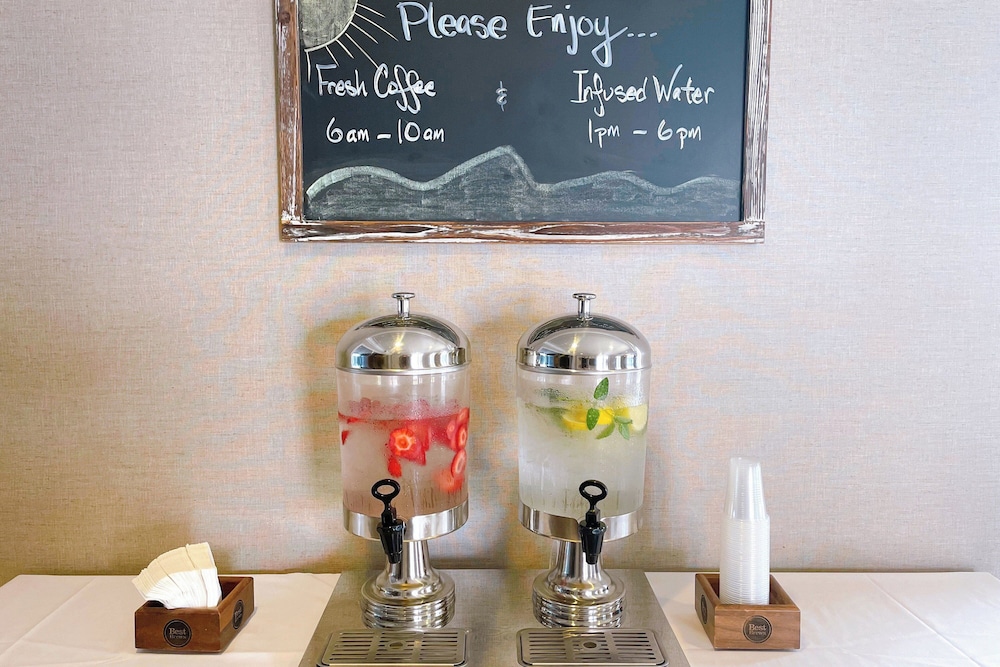 Please Enjoy...
Fresh Coffee
&
Infused Water
6am - 10am
1pm - 6pm
Best
Best